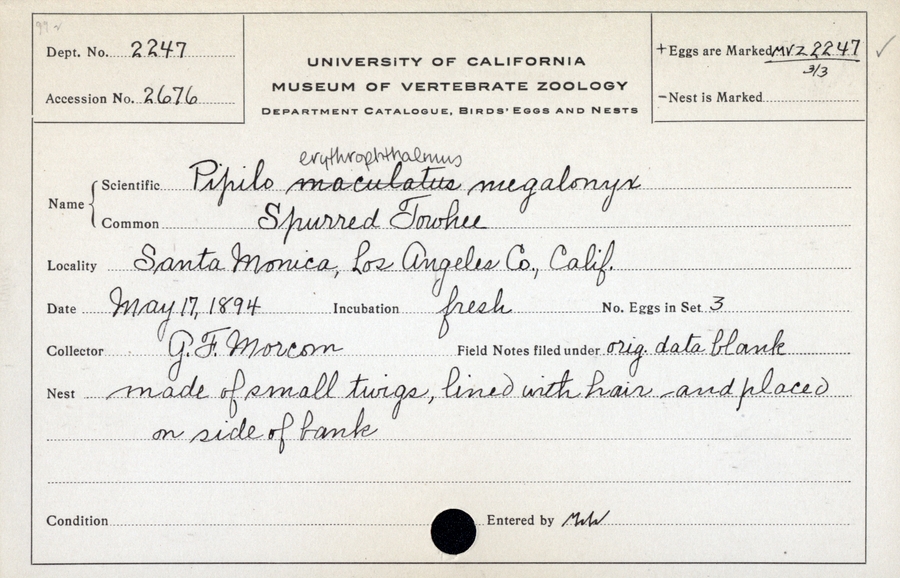 Dept. No. 2247
Accession No. 2676
UNIVERSITY OF CALIFORNIA
MUSEUM OF VERTEBRATE ZOOLOGY
DEPARTMENT CATALOGUE, BIRDS' EGGS AND NESTS
+Eggs are Marked MVZ 2247
3/3
-Nest is Marked
erythrophthalmus
Name Scientific Pipilo maculatus megalonyx
Common Spurred Towhee
Locality Santa Monica, Los Angeles Co., Calif.
Date May 17, 1894 Incubation fresh No. Eggs in Set 3
Collector G. F. Morcom Field Notes filed under orig. data blank
Nest made of small twigs, lined with hair and placed
on side of bank
Condition Entered by